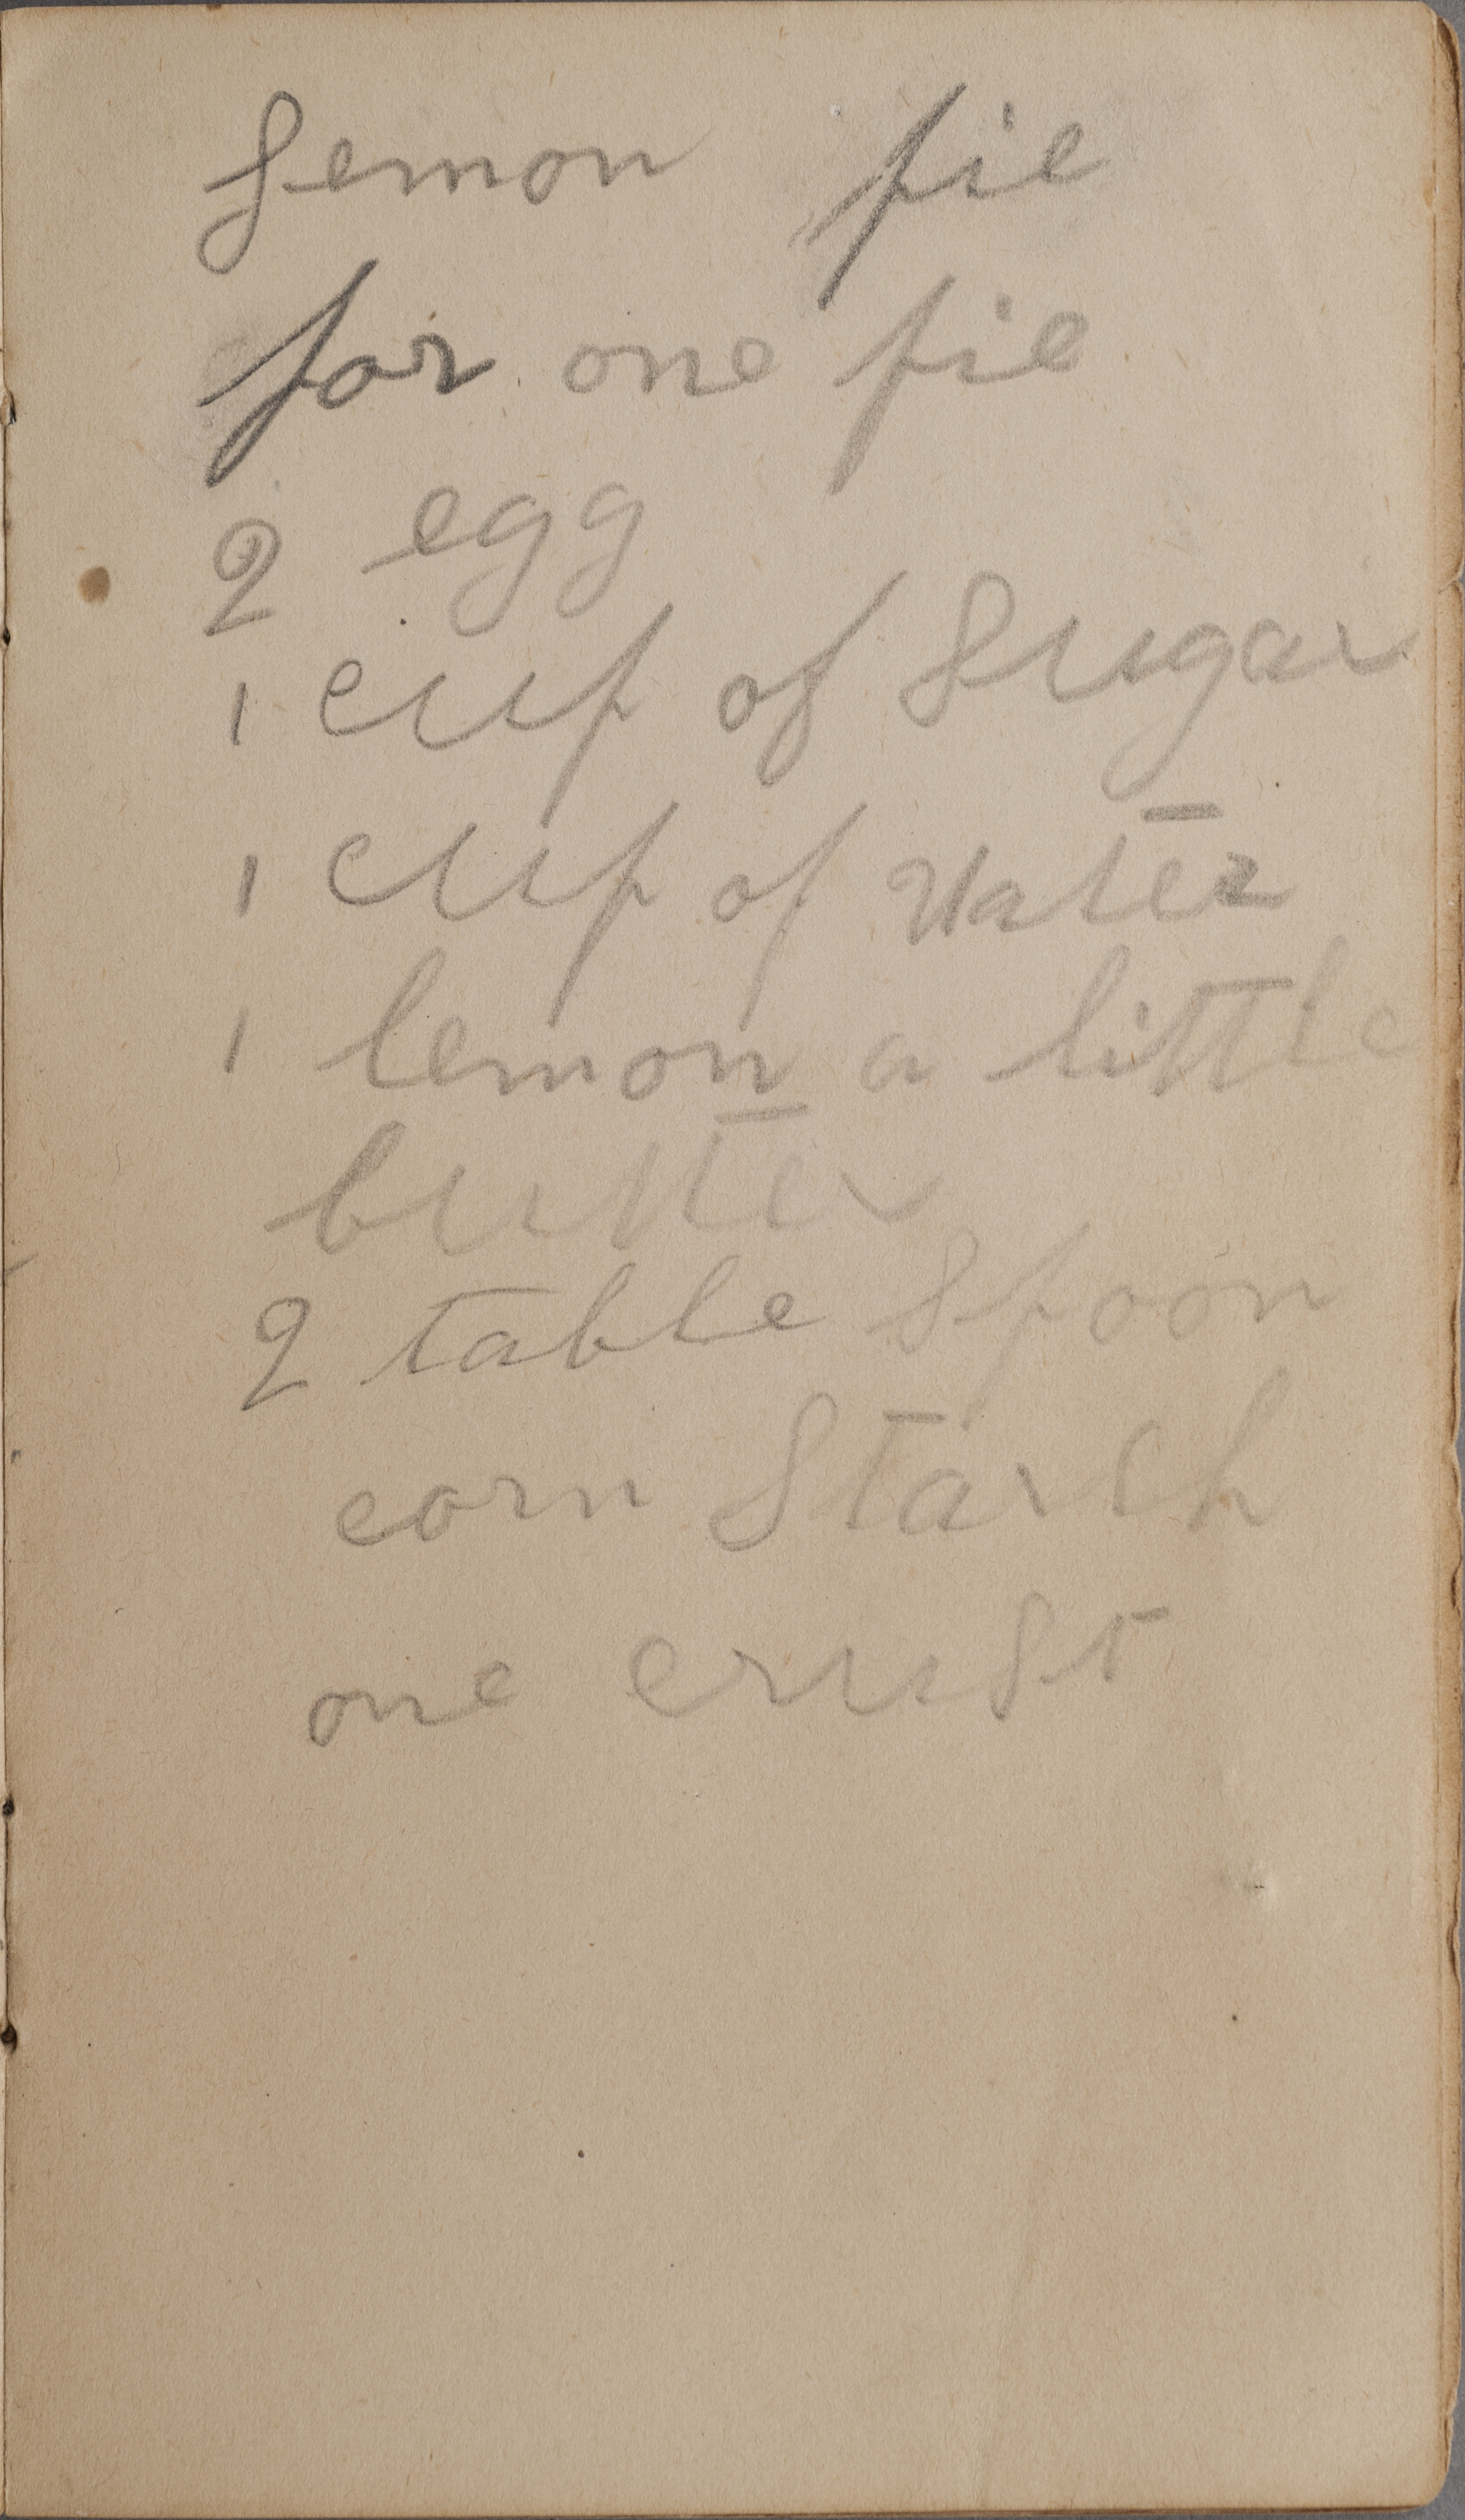 Lemon pie
for one pie
2 egg
1 cup of Sugar
1 cup of Water
1 lemon a little
butter
2 table Spoon
corn Starch
one crust